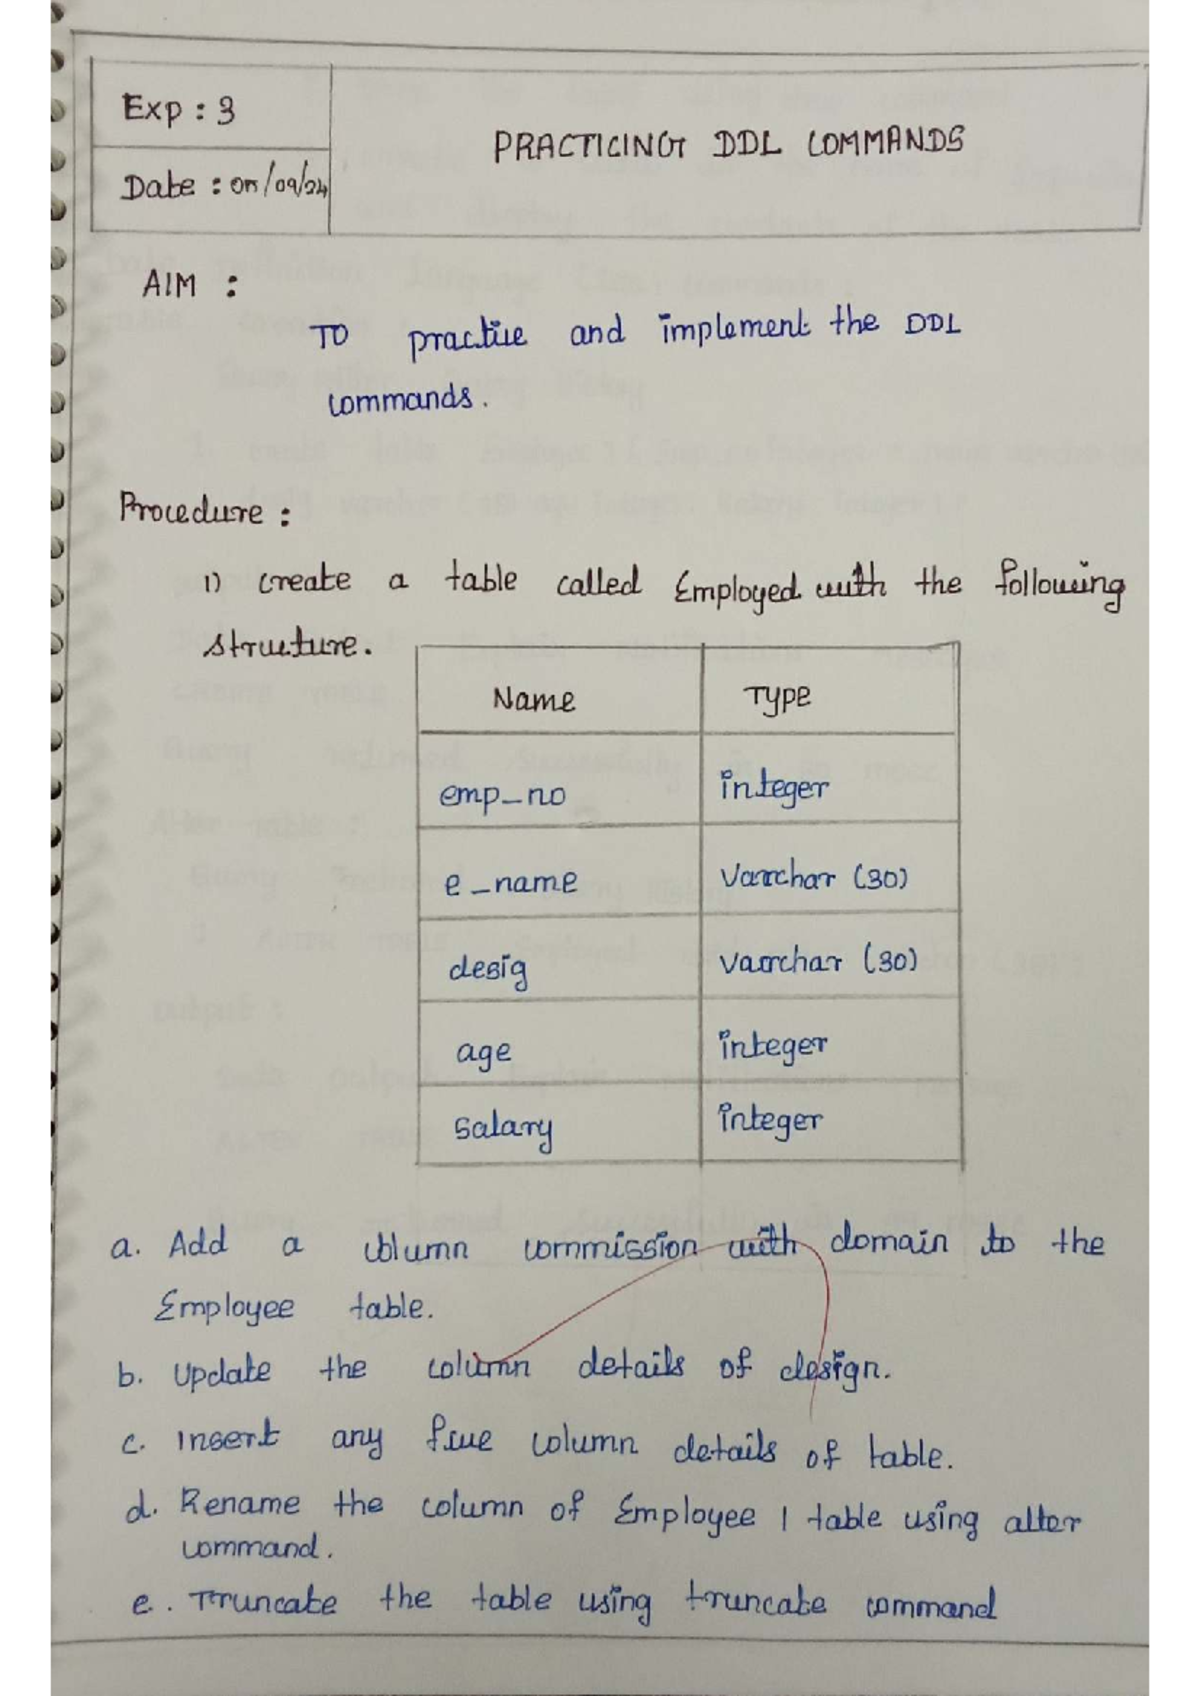 Exp : 3
PRACTICING DDL COMMANDS
Date : 05/09/24
AIM :
To practice and implement the DDL
commands.
Procedure :
1) Create a table called Employed with the following
structure.
Name Type
emp_no integer
e_name Varchar (30)
desig Varchar (30)
age integer
Salary integer
a. Add a column commission with domain to the
Employee table.
b. Update the column details of design.
c. Insert any five column details of table.
d. Rename the column of Employee 1 table using alter
command.
e. Truncate the table using truncate command